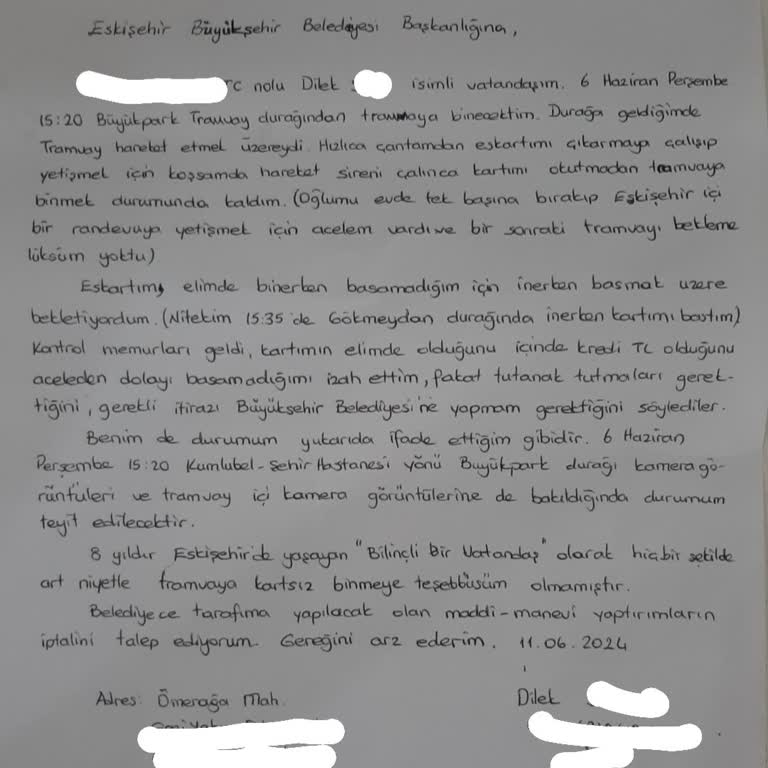 Eskişehir Büyükşehir Belediyesi Başkanlığına,
TC nolu Dilek isimli vatandaşım. 6 Haziran Perşembe
15:20 Büyükpark Tramvay durağından tramvaya binecektim. Durağa geldiğimde
Tramvay hareket etmek üzereydi. Hızlıca çantamdan eskartımı çıkarmaya çalışıp
yetişmek için koşsamda hareket sireni çalınca kartımı okutmadan tramvaya
binmek durumunda kaldım. (Oğlumu evde tek başına bırakıp Eskişehir içi
bir randevuya yetişmek için acelem vardı ve bir sonraki tramvayı bekleme
lüksüm yoktu)
Eskartım, elimde binerken basamadığım için inerken basmak üzere
bekletiyordum. (Nitekim 15:35'de Gökmeydan durağında inerken kartımı bastım)
Kontrol memurları geldi, kartımın elimde olduğunu içinde kredi TL olduğunu
aceleden dolayı basamadığımı izah ettim, fakat tutanak tutmaları gerek-
tiğini, gerekli itirazı Büyükşehir Belediyesi'ne yapmam gerektiğini söylediler.
Benim de durumum yukarıda ifade ettiğim gibidir. 6 Haziran
Perşembe 15:20 Kumlubel-Şehir Hastanesi yönü Büyükpark durağı kamera gö-
rüntüleri ve tramvay içi kamera görüntülerine de bakıldığında durumum
teyit edilecektir.
8 yıldır Eskişehir'de yaşayan "Bilinçli Bir Vatandaş" olarak hiçbir şekilde
art niyetle tramvaya kartsız binmeye teşebbüsüm olmamıştır.
Belediyece tarafıma yapılacak olan maddi-manevi yaptırımların
iptalini talep ediyorum. Gereğini arz ederim. 11.06.2024
Adres: Ömerağa Mah.
Dilek